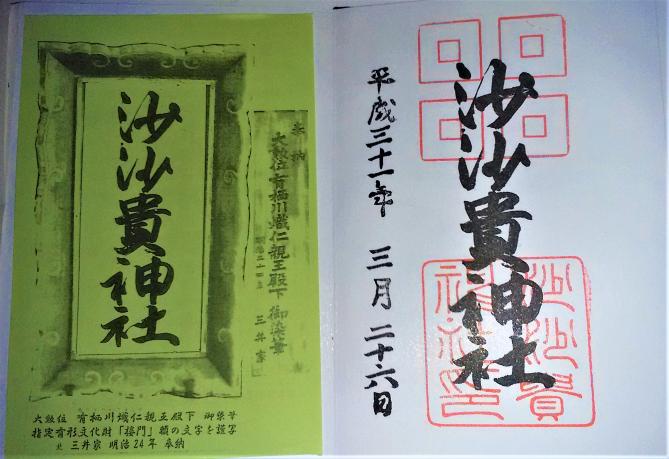 沙沙貴神社
奉納
大勲位 有栖川熾仁親王殿下 御染筆
明治二十四年 三井家
大勲位 有栖川熾仁親王殿下 御染筆
指定有形文化財「楼門」額の文字を謹写
三井家 明治24年 奉納
平成三十一年 三月 二十六日
沙沙貴神社
沙沙貴
神社之印